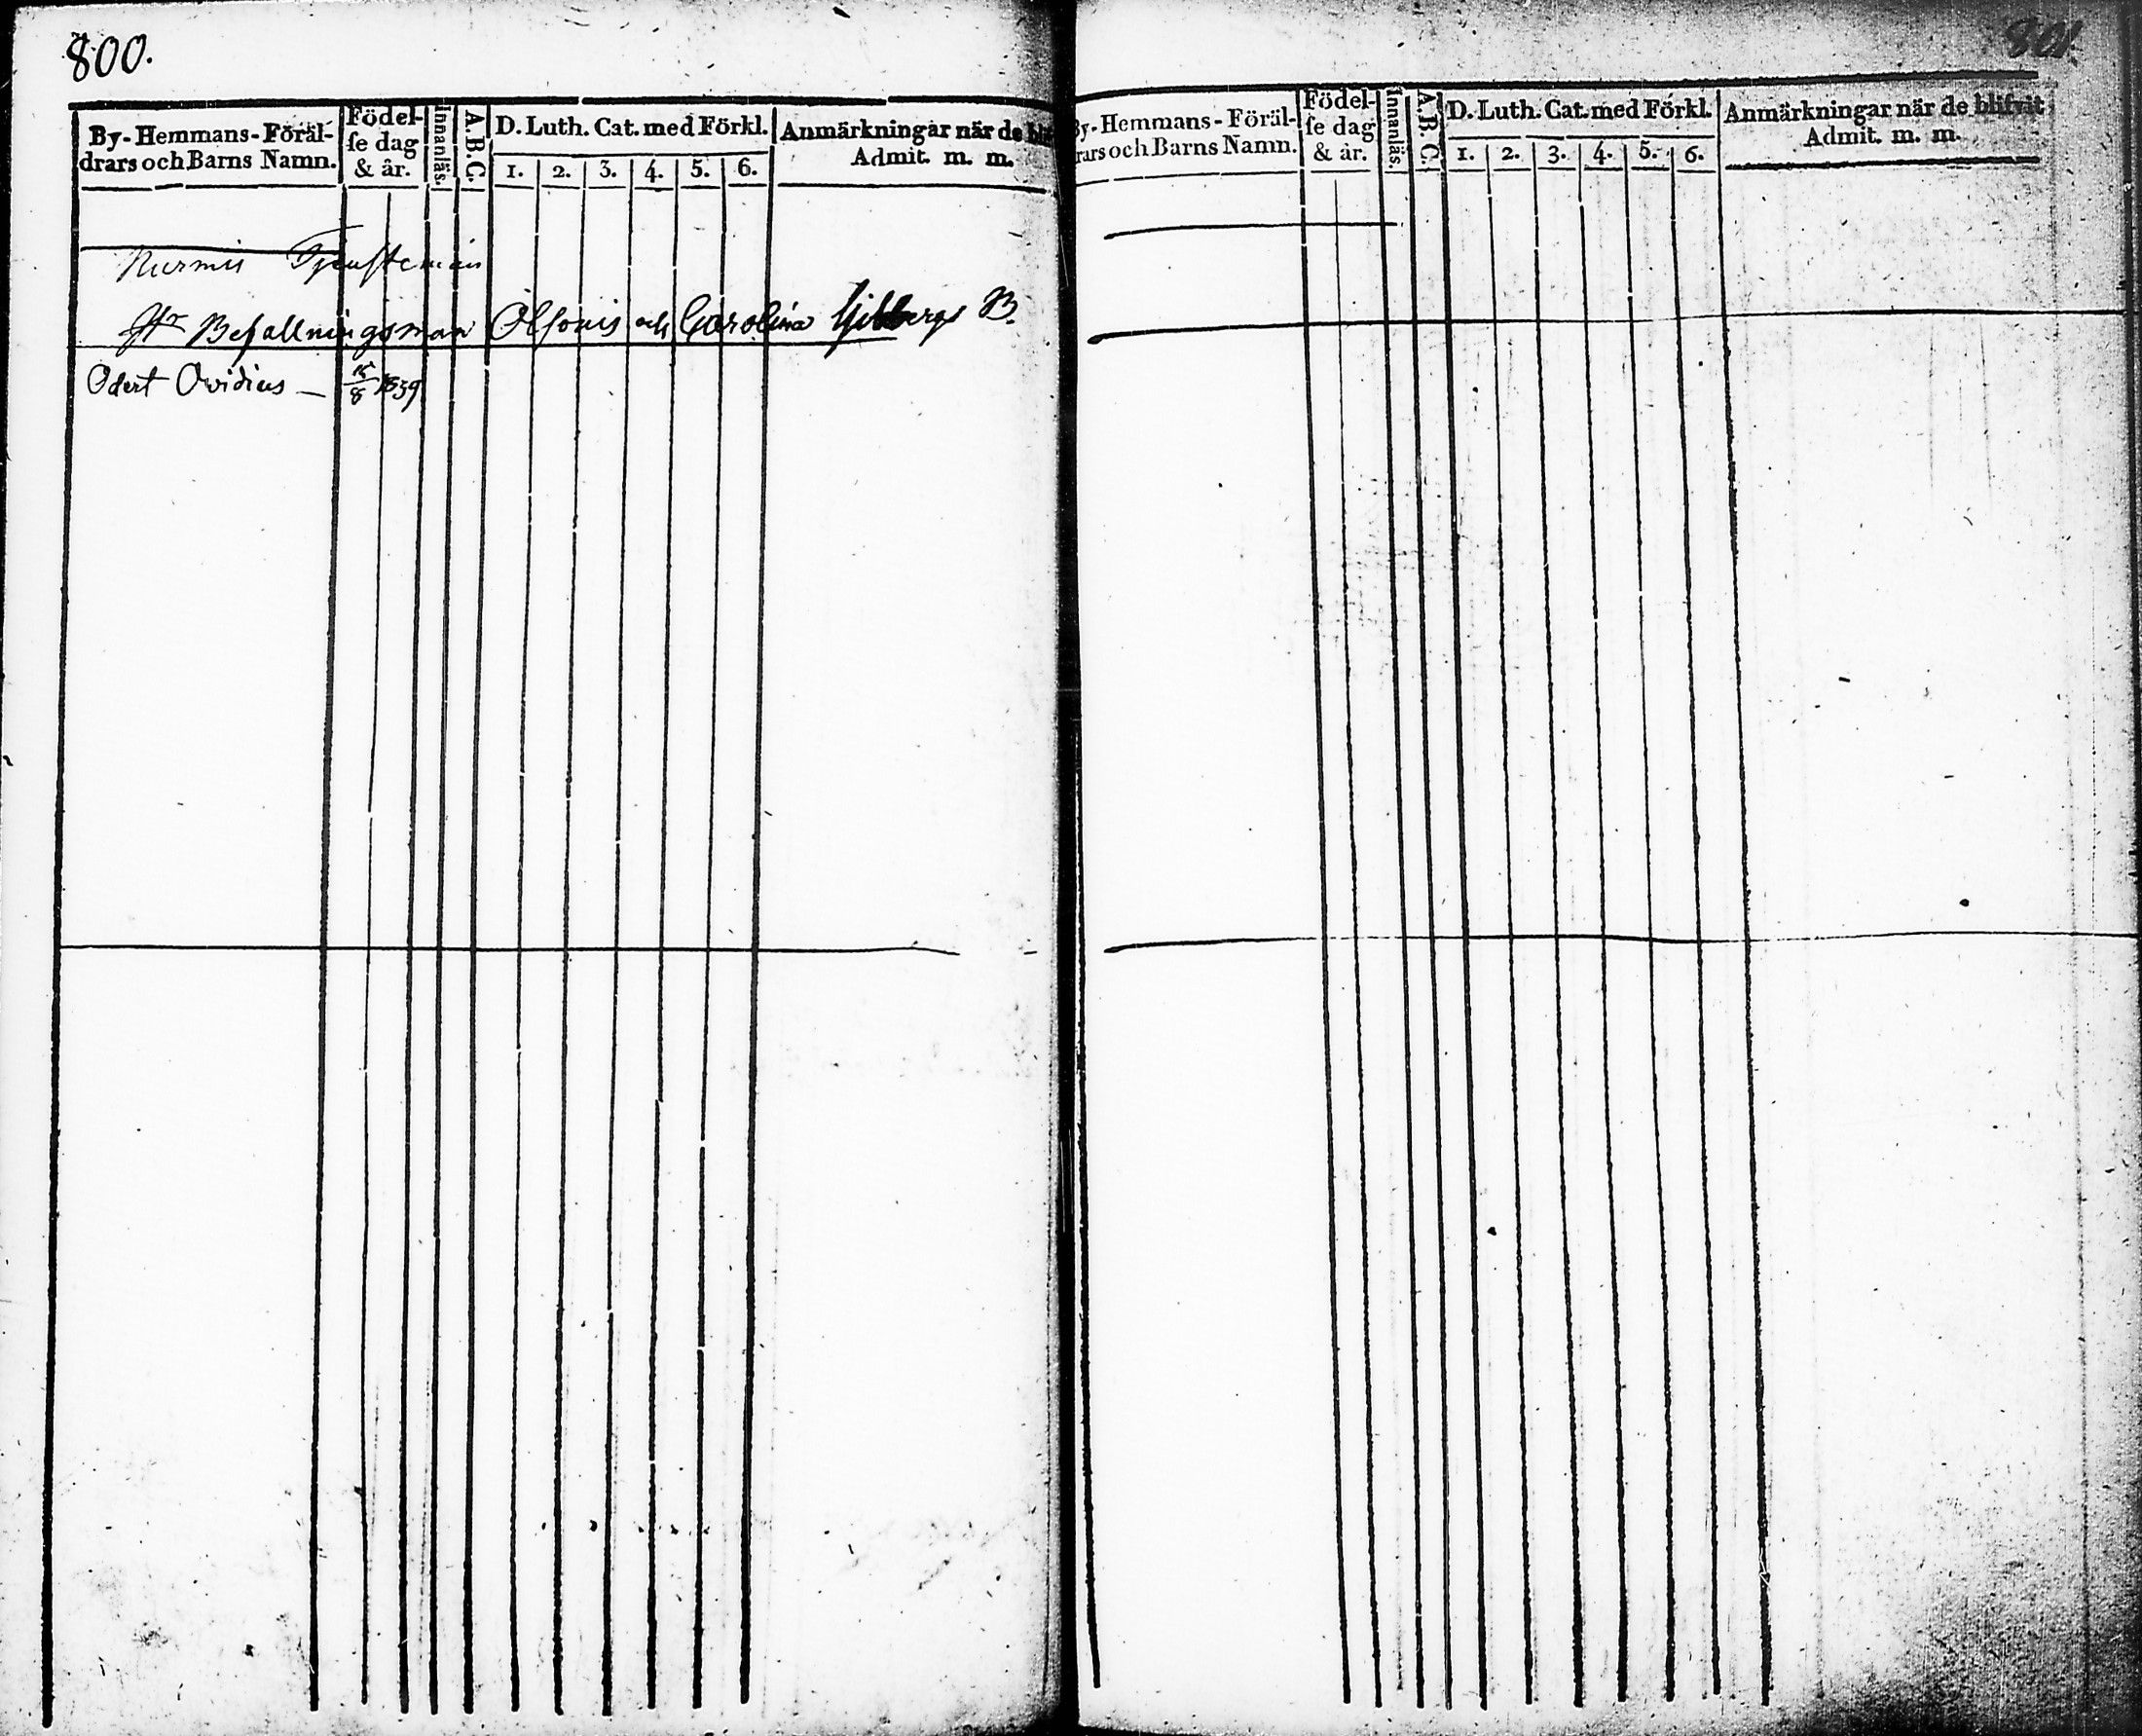 800.
By-Hemmans-Föräl-
drars och Barns Namn.
Födel-
se dag
& år.
Innanläs.
A.B.C.
D. Luth. Cat. med Förkl.
1. 2. 3. 4. 5. 6.
Anmärkningar när de blif
Admit. m. m.
Nurmis Tjensteman
Hr Befallningsman Olsonis och Carolina B.
Odert Ovidius — 15/8 1839
801.
By-Hemmans-Föräl-
rars och Barns Namn.
Födel-
se dag
& år.
Innanläs.
A.B.C.
D. Luth. Cat. med Förkl.
1. 2. 3. 4. 5. 6.
Anmärkningar när de blifvit
Admit. m. m.